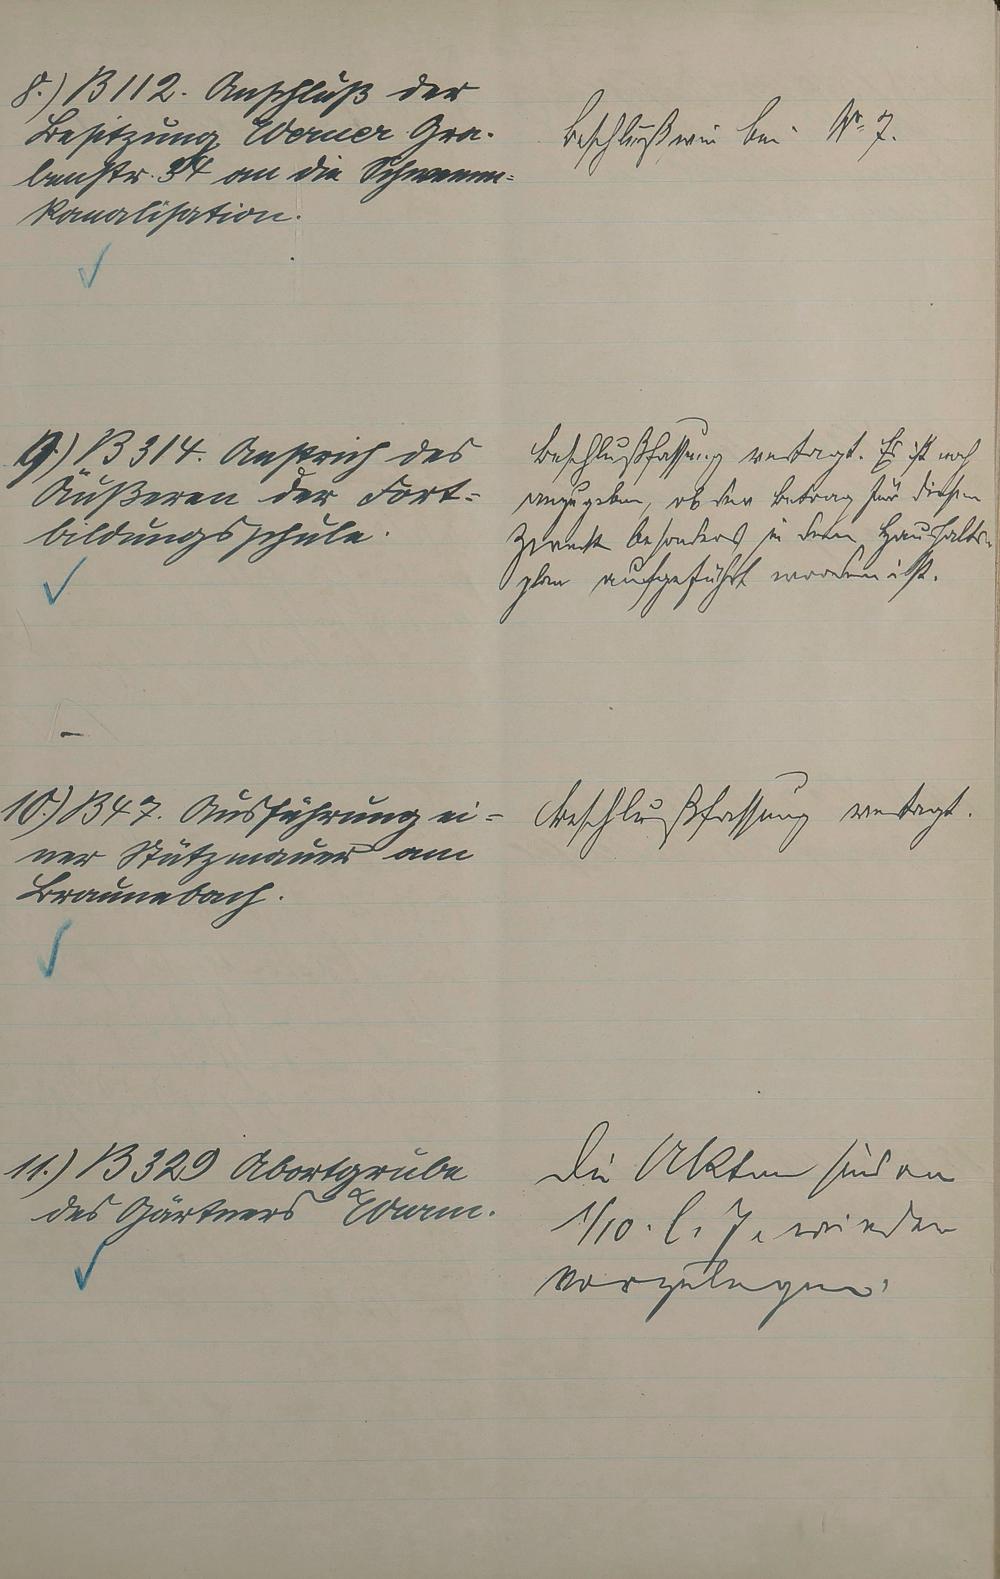 8.) B 112. Anschluß der
Besitzung Werner Gra-
benstr. 34 an die Schwemm-
kanalisation.
Beschluß wie bei Nr. 7.
9.) B 314. Anstrich des
Äußeren der Fort-
bildungsschule.
Beschlußfassung vertagt. Es ist noch
anzugeben, ob der Betrag für diesen
Zweck besonders in dem Haushalts-
plan aufgeführt worden ist.
10.) B 47. Ausführung ei-
ner Stützmauer am
Braunebach.
Beschlußfassung vertagt.
11.) B 329 Abortgrube
des Gärtners
Die Akten sind am
1/10. l. J. wieder
vorzulegen.